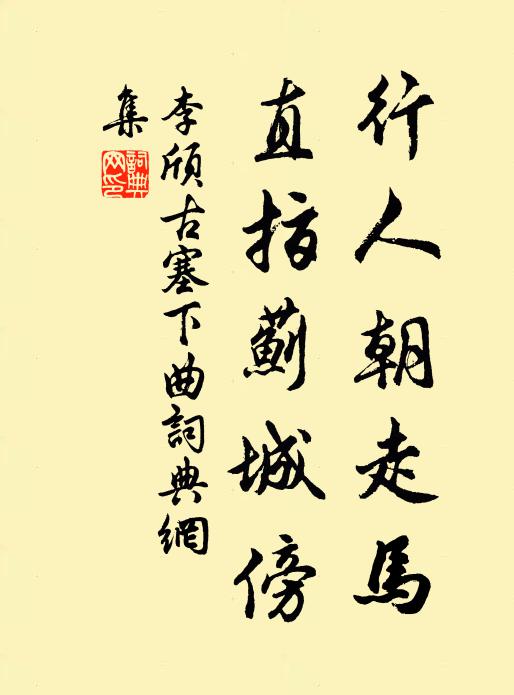 行人朝走馬
直指薊城傍
李頎古塞下曲詞典網
集
詞典
網印